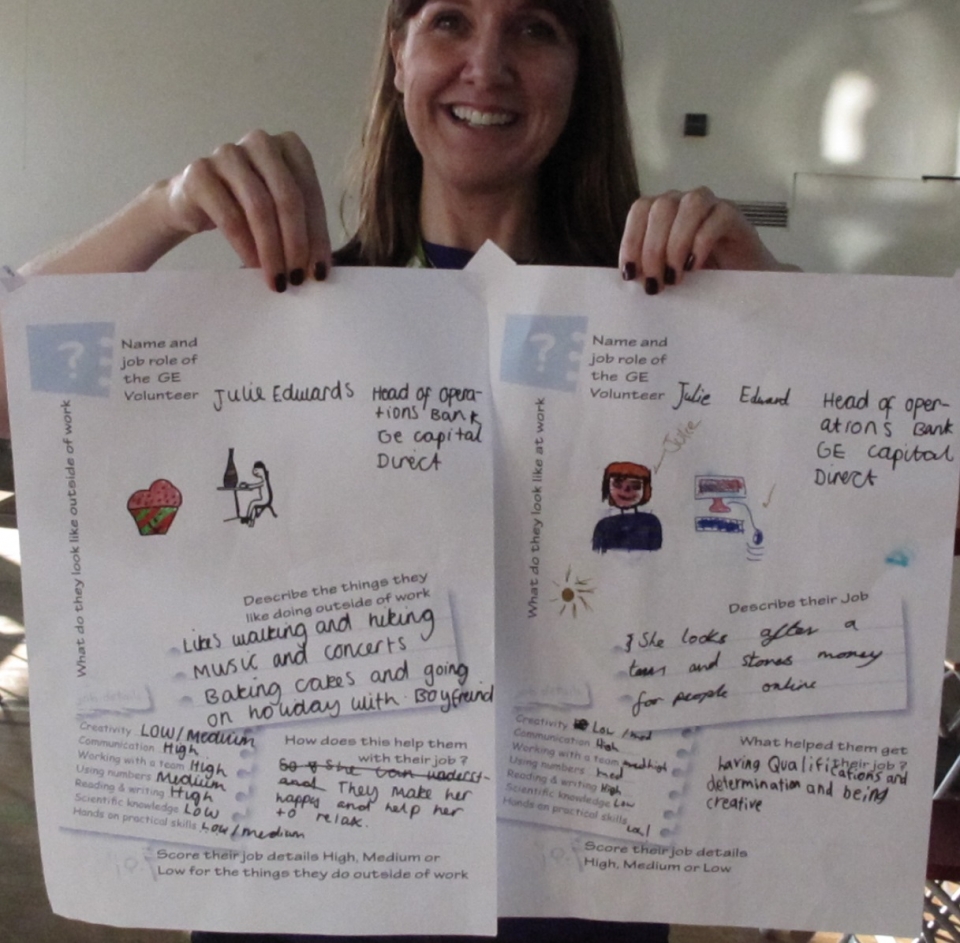 ?
Name and
job role of
the GE
Volunteer
Julie Edwards
Head of opera-
tions Bank
Ge capital
Direct
What do they look like outside of work
Describe the things they
like doing outside of work
Likes walking and hiking
music and concerts
Baking cakes and going
on holiday with Boyfreind
job details
Creativity LOW/Medium
Communication High
Working with a team High
Using numbers Medium
Reading & writing High
Scientific knowledge Low
Hands on practical skills Low/medium
How does this help them
with their job ?
So she can underst-
and They make her
happy and help her
to relax.
Score their job details High, Medium or
Low for the things they do outside of work
?
Name and
job role of
the GE
Volunteer
Julie Edward
Head of oper-
ations Bank
GE capital
Direct
Julie
What do they look like at work
Describe their Job
She looks after a
team and stores money
for people online
job details
Creativity Low /med
Communication High
Working with a team med high
Using numbers med
Reading & writing High
Scientific knowledge Low
Hands on practical skills Low
What helped them get
their job ?
having Qualifications and
determination and being
creative
Score their job details
High, Medium or Low